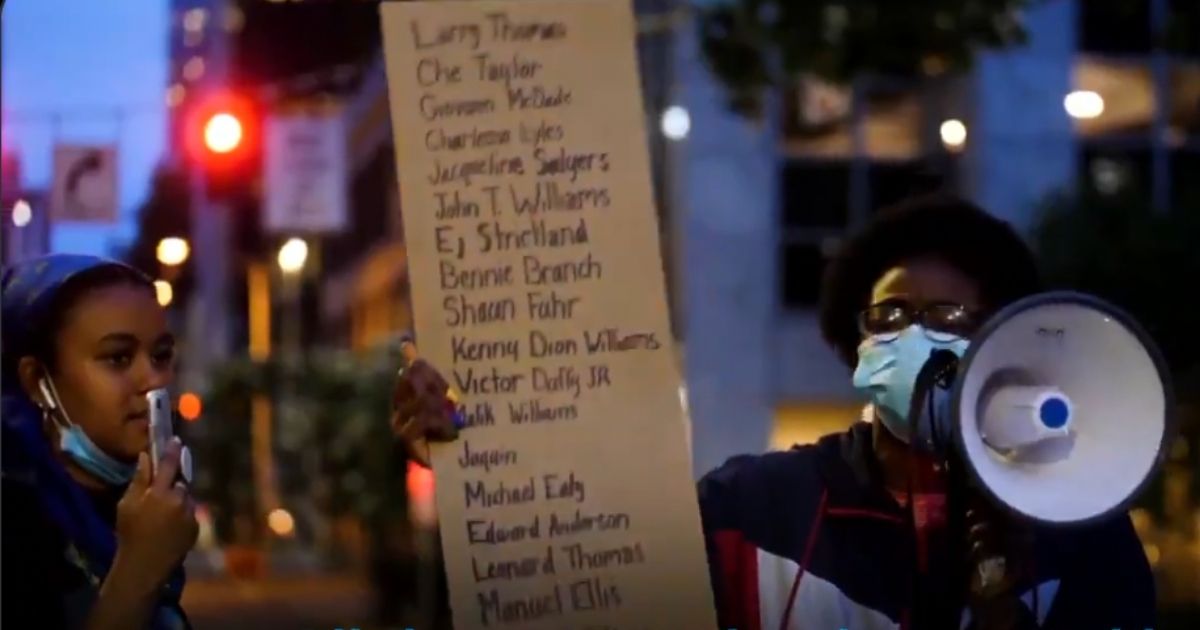 Larry Thomas
Che Taylor
Giovonn McDade
Charleena Lyles
Jacqueline Salyers
John T. Williams
EJ Strictland
Bennie Branch
Shaun Fuhr
Kenny Dion Williams
Victor Duffy JR
Malik Williams
Jaquin
Michael Ealy
Edward Anderson
Leonard Thomas
Manuel Ellis